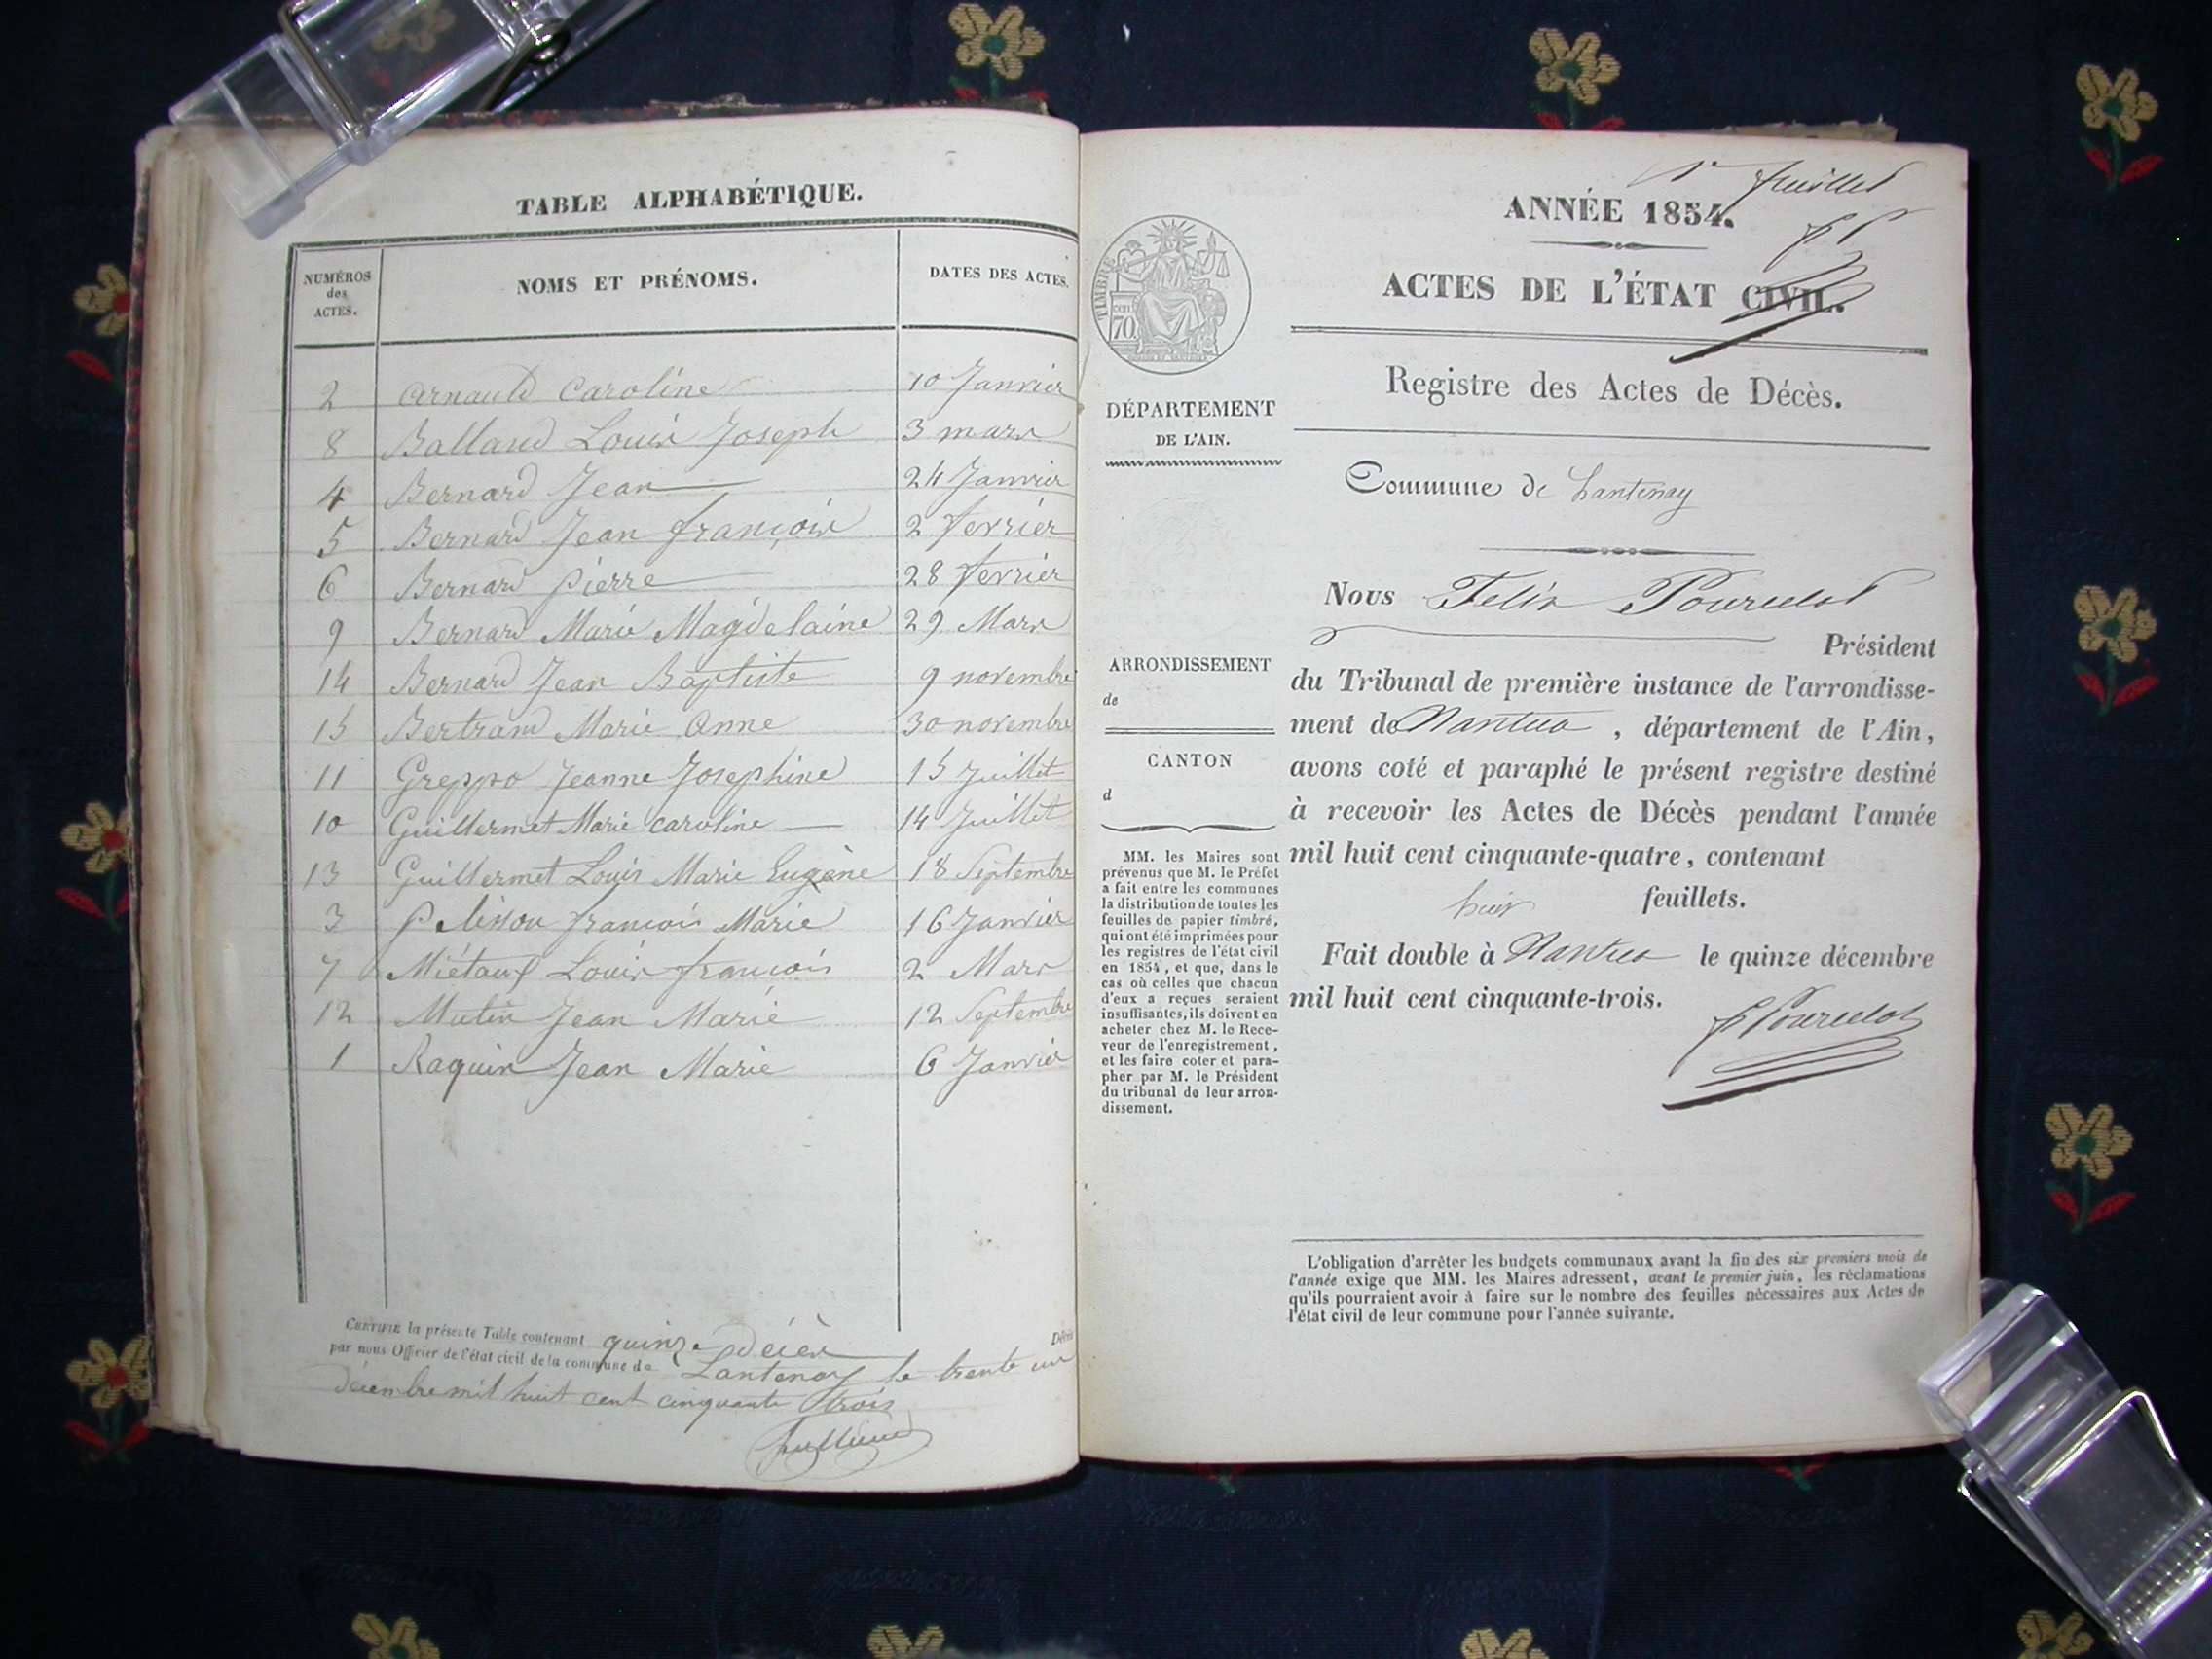 TABLE ALPHABÉTIQUE.
NUMÉROS
des
ACTES.
NOMS ET PRÉNOMS.
DATES DES ACTES.
2 Arnauld Caroline 10 Janvier
8 Balland Louis Joseph 3 mars
4 Bernard Jean 24 Janvier
5 Bernard Jean françois 2 fevrier
6 Bernard pierre 28 fevrier
9 Bernard Marie Magdelaine 29 Mars
14 Bernard Jean Baptiste 9 novembre
15 Bertrand Marie Anne 30 novembre
11 Greppo Jeanne Josephine 15 Juillet
10 Guillermet Marie Caroline 14 Juillet
13 Guillermet Louis Marie Eugène 18 Septembre
3 françois Marie 16 Janvier
7 Louis françois 2 Mars
12 Mutin Jean Marie 12 Septembre
1 Raquin Jean Marie 6 Janvier
CERTIFIÉ la présente Table contenant quinze décès Décès
par nous Officier de l'état civil de la commune de Lantenay le trente un
décembre mil huit cent cinquante trois
1er feuillet
ANNÉE 1854.
TIMBRE
70
ACTES DE L'ÉTAT CIVIL.
Registre des Actes de Décès.
DÉPARTEMENT
DE L'AIN.
Commune de Lantenay
Nous Felix Pourcelot
Président
ARRONDISSEMENT
de
CANTON
d
du Tribunal de première instance de l'arrondisse-
ment de Nantua, département de l'Ain,
avons coté et paraphé le présent registre destiné
à recevoir les Actes de Décès pendant l'année
mil huit cent cinquante-quatre, contenant
huit feuillets.
Fait double à Nantua le quinze décembre
mil huit cent cinquante-trois.
F Pourcelot
MM. les Maires sont
prévenus que M. le Préfet
a fait entre les communes
la distribution de toutes les
feuilles de papier timbré,
qui ont été imprimées pour
les registres de l'état civil
en 1854, et que, dans le
cas où celles que chacun
d'eux a reçues seraient
insuffisantes, ils doivent en
acheter chez M. le Rece-
veur de l'enregistrement,
et les faire coter et para-
pher par M. le Président
du tribunal de leur arron-
dissement.
L'obligation d'arrêter les budgets communaux avant la fin des six premiers mois de
l'année exige que MM. les Maires adressent, avant le premier juin, les réclamations
qu'ils pourraient avoir à faire sur le nombre des feuilles nécessaires aux Actes de
l'état civil de leur commune pour l'année suivante.